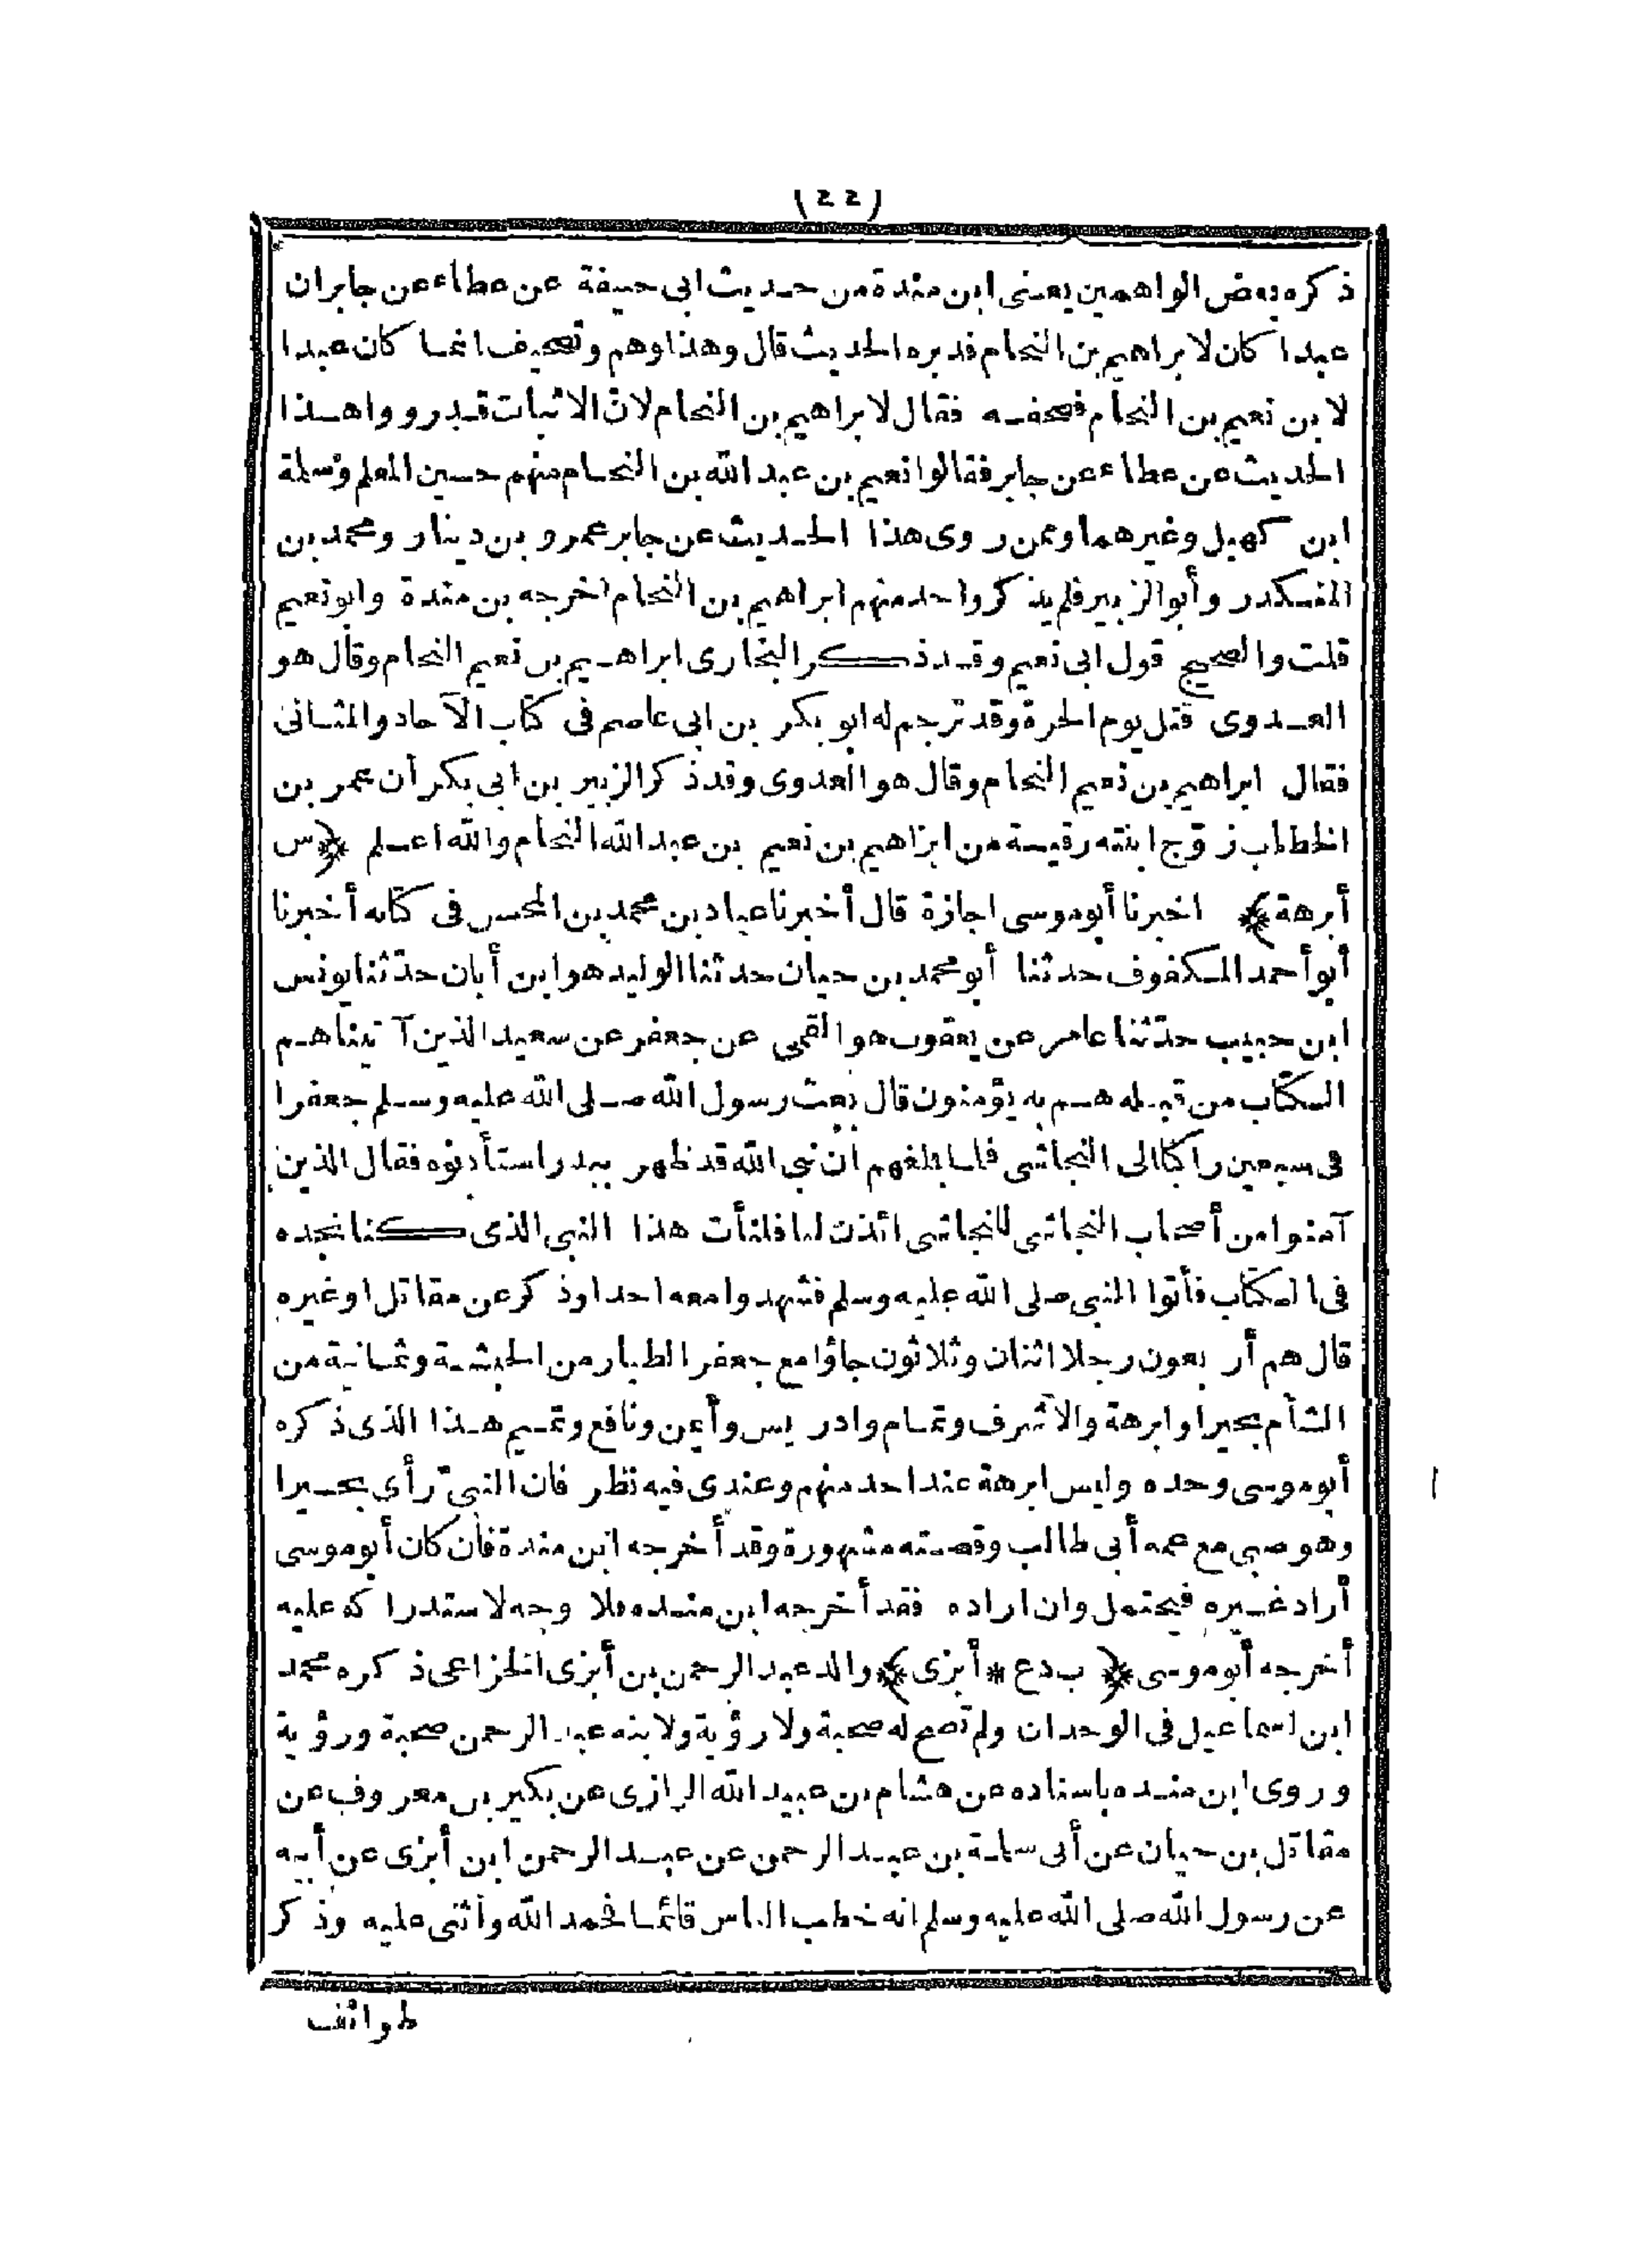 (٤٤)
ذكره بعض الواهمين يعنى ابن مندة من حديث ابى حنيفة عن عطاء عن جابر ان
عبدا كان لابراهيم بن النحام فدبره الحديث قال وهذا وهم وتصحيف انما كان عبدا
لابن نعيم بن النحام فصحفه فقال لابراهيم بن النحام لان الاثبات قدرووا هذا
الحديث عن عطاء عن جابر فقالوا نعيم بن عبد الله بن النحام منهم حسين المعلم وسلمة
ابن كهيل وغيرهما وممن روى هذا الحديث عن جابر عمرو بن دينار ومحمد بن
المنكدر وأبو الزبير فلم يذكر واحد منهم ابراهيم بن النحام اخرجه بن مندة وابو نعيم
قلت والصحيح قول ابى نعيم وقد ذكر البخارى ابراهيم بن نعيم النحام وقال هو
العدوى قتل يوم الحرة وقد ترجم له ابو بكر بن ابى عاصم فى كتاب الآحاد والمثانى
فقال ابراهيم بن نعيم النحام وقال هو العدوى وقد ذكر الزبير بن ابى بكر أن عمر بن
الخطاب زوّج ابنته رقية من ابراهيم بن نعيم بن عبد الله النحام والله اعلم ﴿س
أبرهة﴾ اخبرنا أبو موسى اجازة قال أخبرنا عباد بن محمد بن المحسن فى كتابه أخبرنا
أبو أحمد المكفوف حدثنا أبو محمد بن حيان حدثنا الوليد هو ابن أبان حدّثنا يونس
ابن حبيب حدّثنا عامر عن يعقوب هو القمى عن جعفر عن سعيد الذين آتيناهم
الكتاب من قبله هم به يؤمنون قال بعث رسول الله صلى الله عليه وسلم جعفرا
فى سبعين راكبا الى النجاشى فلما بلغهم ان نبى الله قد ظهر ببدر استأذنوه فقال الذين
آمنوا من أصحاب النجاشى للنجاشى ائذن لنا فلنأت هذا النبى الذى كنا نجده
فى الكتاب فأتوا النبى صلى الله عليه وسلم فشهدوا معه احدا وذكر عن مقاتل او غيره
قال هم أربعون رجلا اثنان وثلاثون جاؤا مع جعفر الطيار من الحبشة وثمانية من
الشأم بحيرا وابرهة والاشرف وتمام وادريس وأيمن ونافع وتميم هذا الذى ذكره
أبو موسى وحده وليس ابرهة عند احد منهم وعندى فيه نظر فان النبىّ رأى بحيرا
وهو صبى مع عمه أبى طالب وقصته مشهورة وقد أخرجه ابن مندة فان كان أبو موسى
أراد غيره فيحتمل وان اراده فقد أخرجه ابن منده فلا وجه لاستدراكه عليه
أخرجه أبو موسى ﴿ب دع * أبزى﴾ والد عبد الرحمن بن أبزى الخزاعى ذكره محمد
ابن اسماعيل فى الوحدان ولم تصح له صحبة ولا رؤية ولابنه عبد الرحمن صحبة ورؤية
وروى ابن منده باسناده عن هشام بن عبيد الله الرازى عن بكير بن معروف عن
مقاتل بن حيان عن أبى سلمة بن عبد الرحمن عن عبد الرحمن ابن أبزى عن أبيه
عن رسول الله صلى الله عليه وسلم انه خطب الناس قائما فحمد الله وأثنى عليه وذكر
طوائف